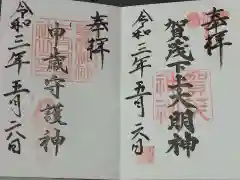 奉拝
賀茂下上大明神
令和三年五月六日
奉拝
申歳守護神
令和三年五月六日